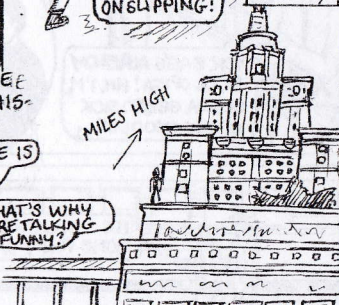 ON SLIPPING!
EE
HIS-
MILES HIGH
E IS
HAT'S WHY
RE TALKING
FUNNY?